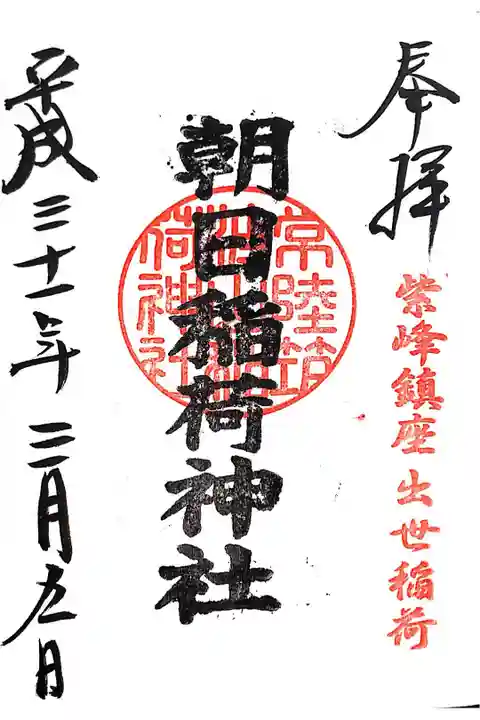 奉拝
紫峰鎮座出世稲荷
朝日稲荷神社
常陸筑
荷神社
平成三十一年三月九日